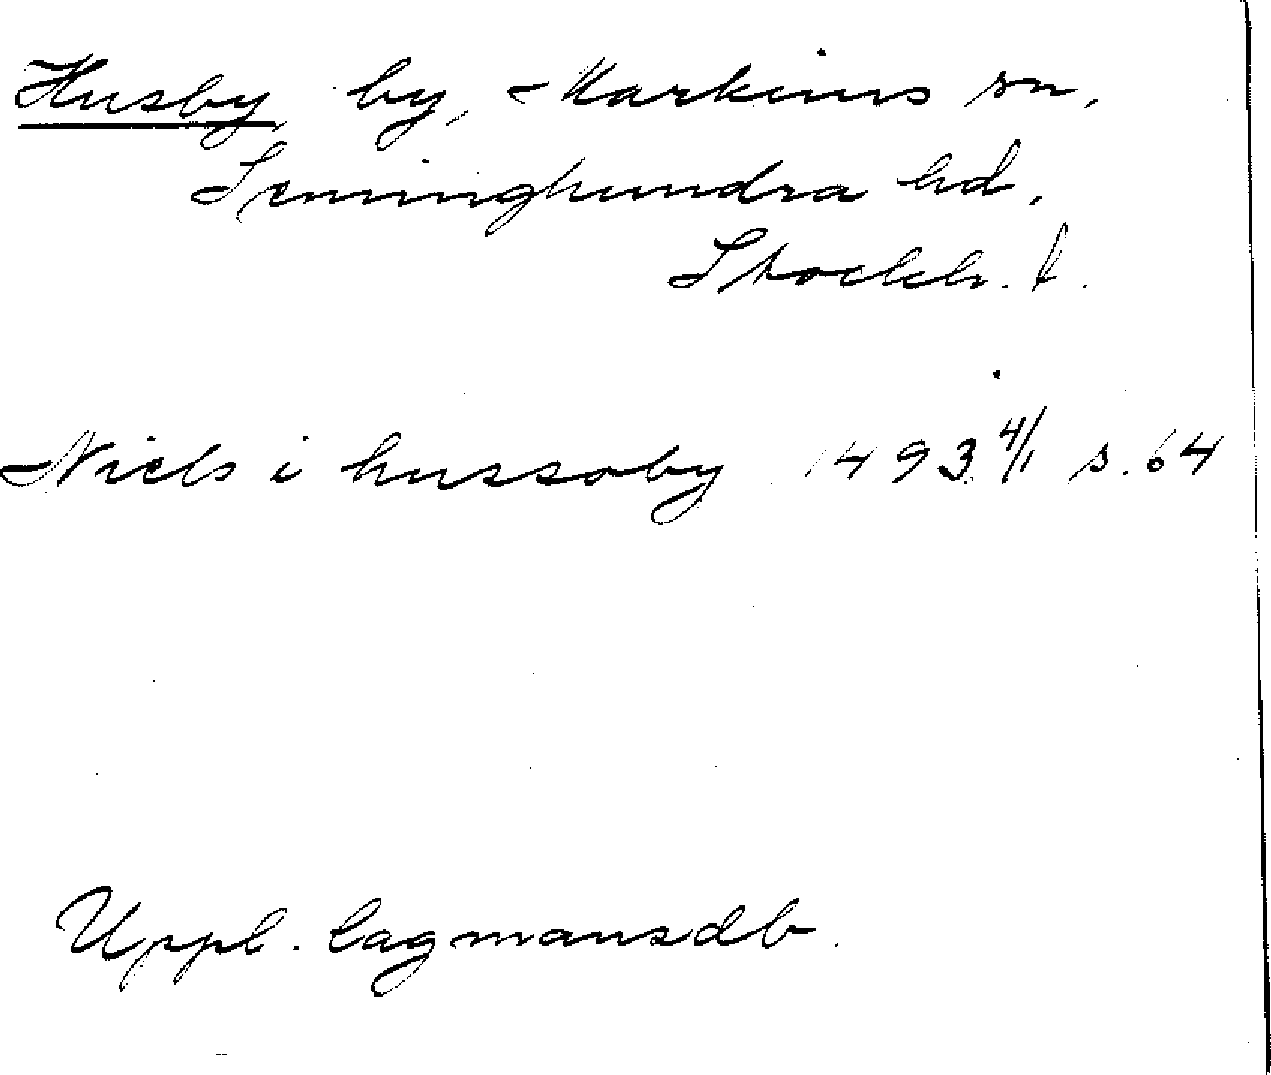 Husby by, Markims sn,
Seminghundra hd.
Stockh. l.
Niels i hussaby 1493 4/1 s. 64
Uppl. lagmansdb.